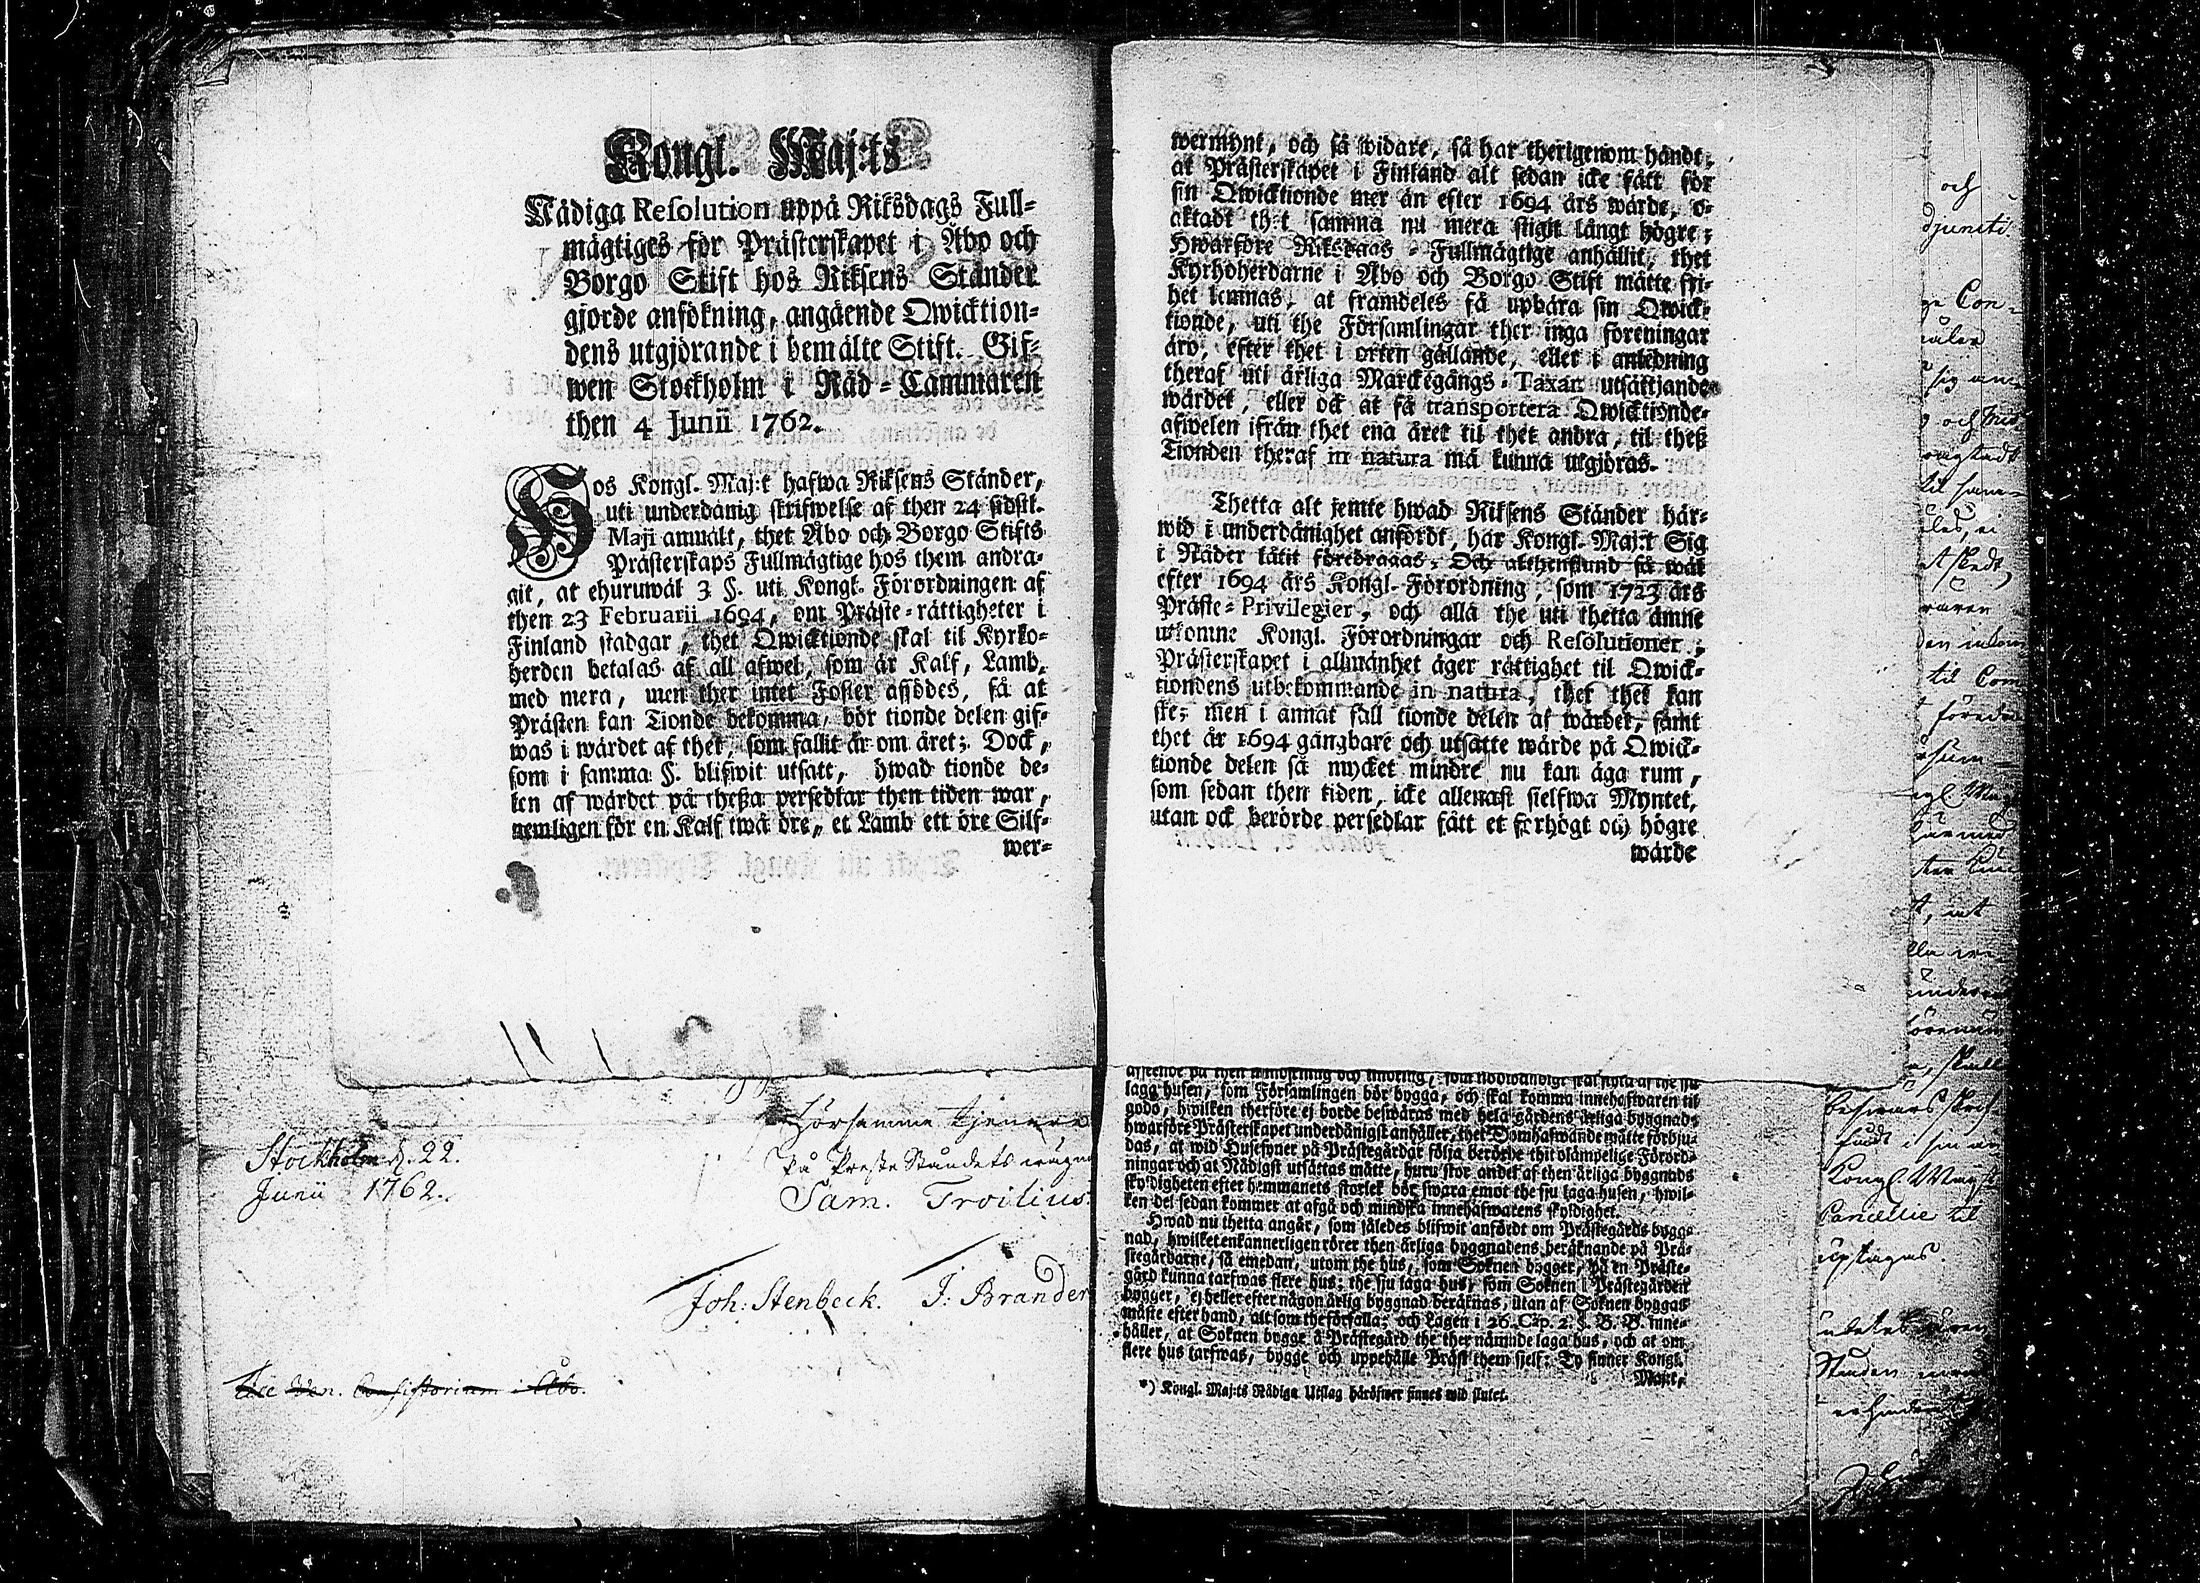 Kongl. Maj:ts
Nådiga Resolution uppå Riksdags Full-
mägtiges för Prästerskapet i Åbo och
Borgo Stift hos Riksens Ständer
gjorde ansökning, angående Qwicktion-
dens utgjörande i bemälte Stift. Gif-
wen Stockholm i Råd-Cammaren
then 4 Junii 1762.
Hos Kongl. Maj:t hafwa Riksens Ständer,
uti underdånig skrifwelse af then 24 sidstl.
Maji anmält, thet Åbo och Borgo Stifts
Prästerskaps Fullmägtige hos them andra-
git, at ehuruwäl 3 §. uti Kongl. Förordningen af
then 23 Februarii 1694, om Präste-rättigheter i
Finland stadgar, thet Qwicktionde skal til Kyrko-
herden betalas af all afwel, som är Kalf, Lamb,
med mera, men ther intet Foster affödes, så at
Prästen kan Tionde bekomma, bör tionde delen gif-
was i wärdet af thet, som fallit är om året; Dock,
som i samma §. blifwit utsatt, hwad tionde de-
len af wärdet på theßa persedlar then tiden war,
nemligen för en Kalf twå öre, et Lamb ett öre Silf-
wer-
wermynt, och så widare, så har therigenom händt,
at Prästerskapet i Finland alt sedan icke fått för
sin Qwicktionde mer än efter 1694 års wärde, o-
aktadt thet samma nu mera stigit långt högre;
Hwarföre Riksdags-Fullmägtige anhållit, thet
Kyrkoherdarne i Åbo och Borgo Stift måtte fri-
het lemnas, at framdeles få upbära sin Qwick-
tionde, uti the Församlingar ther inga föreningar
äro, efter thet i orten gällande, eller i anledning
theraf uti årliga Marckegångs-Taxan utsättjande
wärdet, eller ock at få transportera Qwicktionde-
afwelen ifrån thet ena året til thet andra, til theß
Tionden theraf in natura må kunna utgjöras.
Thetta alt jemte hwad Riksens Ständer här-
wid i underdånighet anfördt, har Kongl. Maj:t Sig
i Nåder låtit föredragas. Och althenstund så wäl
efter 1694 års Kongl. Förordning, som 1723 års
Präste-Privilegier, och alla the uti thetta ämne
utkomne Kongl. Förordningar och Resolutioner,
Prästerskapet i allmänhet äger rättighet til Qwick-
tiondens utbekommande in natura, ther thet kan
ske; men i annat fall tionde delen af wärdet, samt
thet år 1694 gångbare och utsatte wärde på Qwick-
tionde delen så mycket mindre nu kan äga rum,
som sedan then tiden, icke allenast sielfwa Myntet,
utan ock berörde persedlar fått et förhögt och högre
wärde
Hörsamme tjenare
Stockholm d. 22.
På Preste Ståndets wägnar
Junii 1762.
Sam. Troilius.
Joh: Stenbeck. J: Brander
Til Ven. Consistorium i Åbo.
laga husen, som Församlingen bör bygga, och skal komma innehafwaren til
godo, hwilken therföre ej borde beswäras med hela gårdens årliga byggnad;
hwarföre Prästerskapet underdånigst anhåller, thet Domhafwande måtte förbju-
das, at wid Husesyner på Prästegårdar följa berörde thit olämpelige Förord-
ningar och at Nådigst utsättas måtte, huru stor andel af then årliga byggnads
skyldigheten efter hemmanets storlek bör swara emot the sju laga husen, hwil-
ken del sedan kommer at afgå och mindska innehafwarens skyldighet.
Hwad nu thetta angår, som således blifwit anfördt om Prästegårds bygg-
nad, hwilket enkannerligen rörer then årliga byggnadens beräknande på Prä-
stegårdarne, så emedan, utom the hus, som Soknen bygger, på en Präste-
gård kunna tarfwas flere hus; the sju laga hus, som Soknen i Prästegården
bygger, ej heller efter någon årlig byggnad beräknas, utan af Soknen byggas
måste efter hand, alt som the förfalla; och Lagen i 26. Cap. 2. §. B. B. inne-
håller, at Soknen bygge å Prästegård the ther nämnde laga hus, och at om
flere hus tarfwas, bygge och uppehålle Präst them sjelf: Ty finner Kongl.
Maj:t,
*) Kongl. Maj:ts Nådiga Utslag häröfwer finnes wid slutet.
och
til Com
Kongl. Maj:t
Cancellie til
uptages.